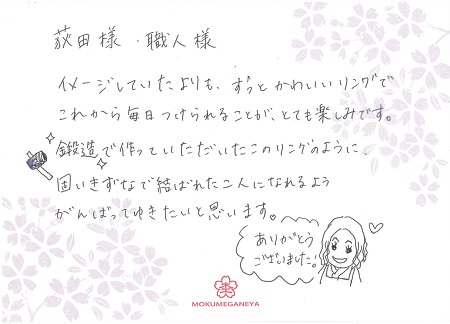 荻田様・職人様
イメージしていたよりも、ずっとかわいいリングで
これから毎日つけられることが、とても楽しみです。
鍛造で作っていただいたこのリングのように、
固いきずなで結ばれた二人になれるよう
がんばってゆきたいと思います。
ありがとう
ございました!
MOKUMEGANEYA